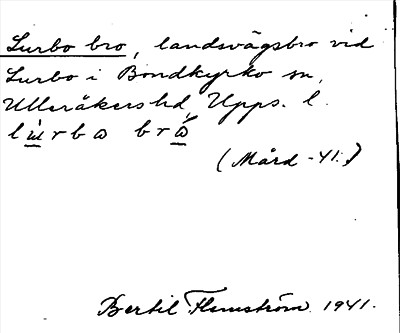 Lurbo bro, landsvägsbro vid
Lurbo i Bondkyrko sn,
Ulleråkers hd, Upps. l.
lùrba bró
(Mård -41.)
Bertil Flemström 1941.